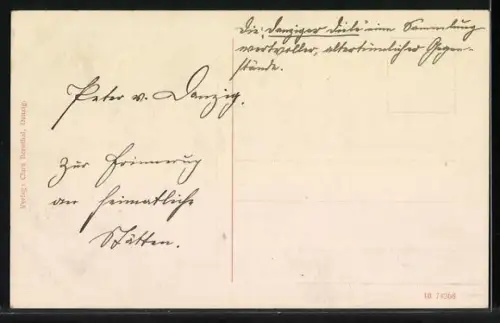 Die „Danziger Diele" eine Sammlung
wertvoller, altertümlicher Gegen-
stände.
Peter v. Danzig.
Zur Erinnerung
an heimatliche
Stätten.
Verlag: Clara Bernthal, Danzig.